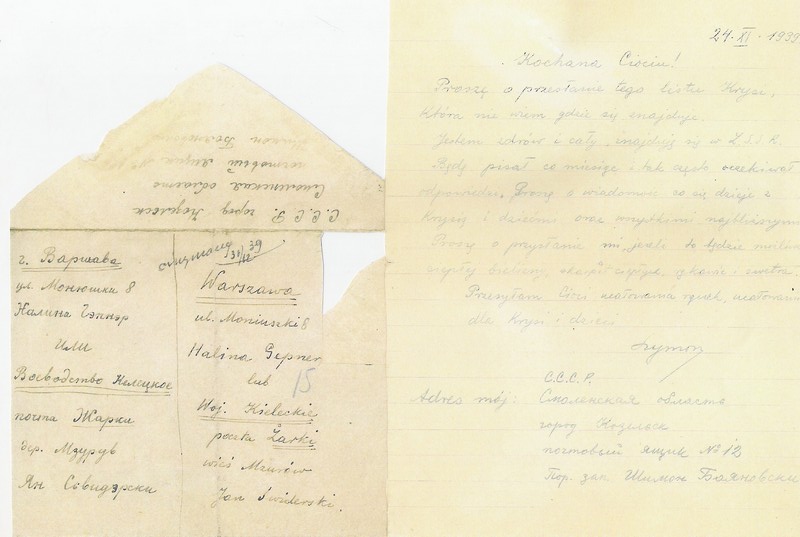 С.С.С.Р. город Козельск
Смоленская область
почтовый ящик № 12
г. Варшава
ул. Монюшки 8
Халина Гэпнэр
или
Воеводство Келецкое
почта Жарки
дер. Мзурув
Ян Свидэрски
otrzymany 31/12 39
Warszawa
ul. Moniuszki 8
Halina Gepner
lub 15
Woj. Kieleckie
poczta Żarki
wieś Mzurów
Jan Świderski.
24. XI. 1939
Kochana Ciociu!
Proszę o przesłanie tego listu Krysi,
która nie wiem gdzie się znajduje.
Jestem zdrów i cały, znajduję się w Z.S.S.R.
Będę pisał co miesiąc i tak często oczekiwał
odpowiedzi. Proszę o wiadomości co się dzieje z
Krysią i dziećmi oraz wszystkimi najbliższymi
Proszę o przysłanie mi, jeżeli to będzie możliwe
ciepłej bielizny, skarpet i swetra.
Przesyłam Cioci ucałowania rączek, ucałowania
dla Krysi i dzieci
Szymon
Adres mój: С.С.С.Р.
Смоленская область
город Козельск
почтовый ящик № 12
Пор. зап. Шимон Баяновски